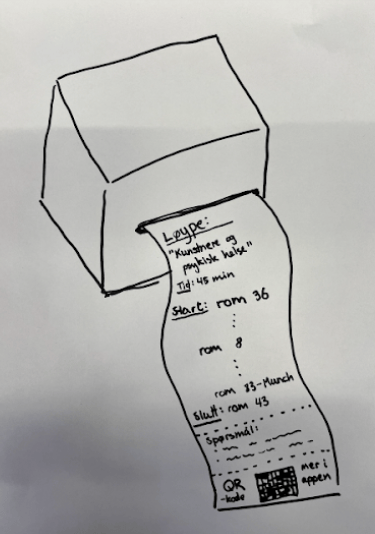 Løype:
"Kunstnere og
psykisk helse"
Tid: 45 min
Start: rom 36
rom 8
rom 33-Munch
Slutt: rom 43
Spørsmål:
QR
-kode
mer i
appen